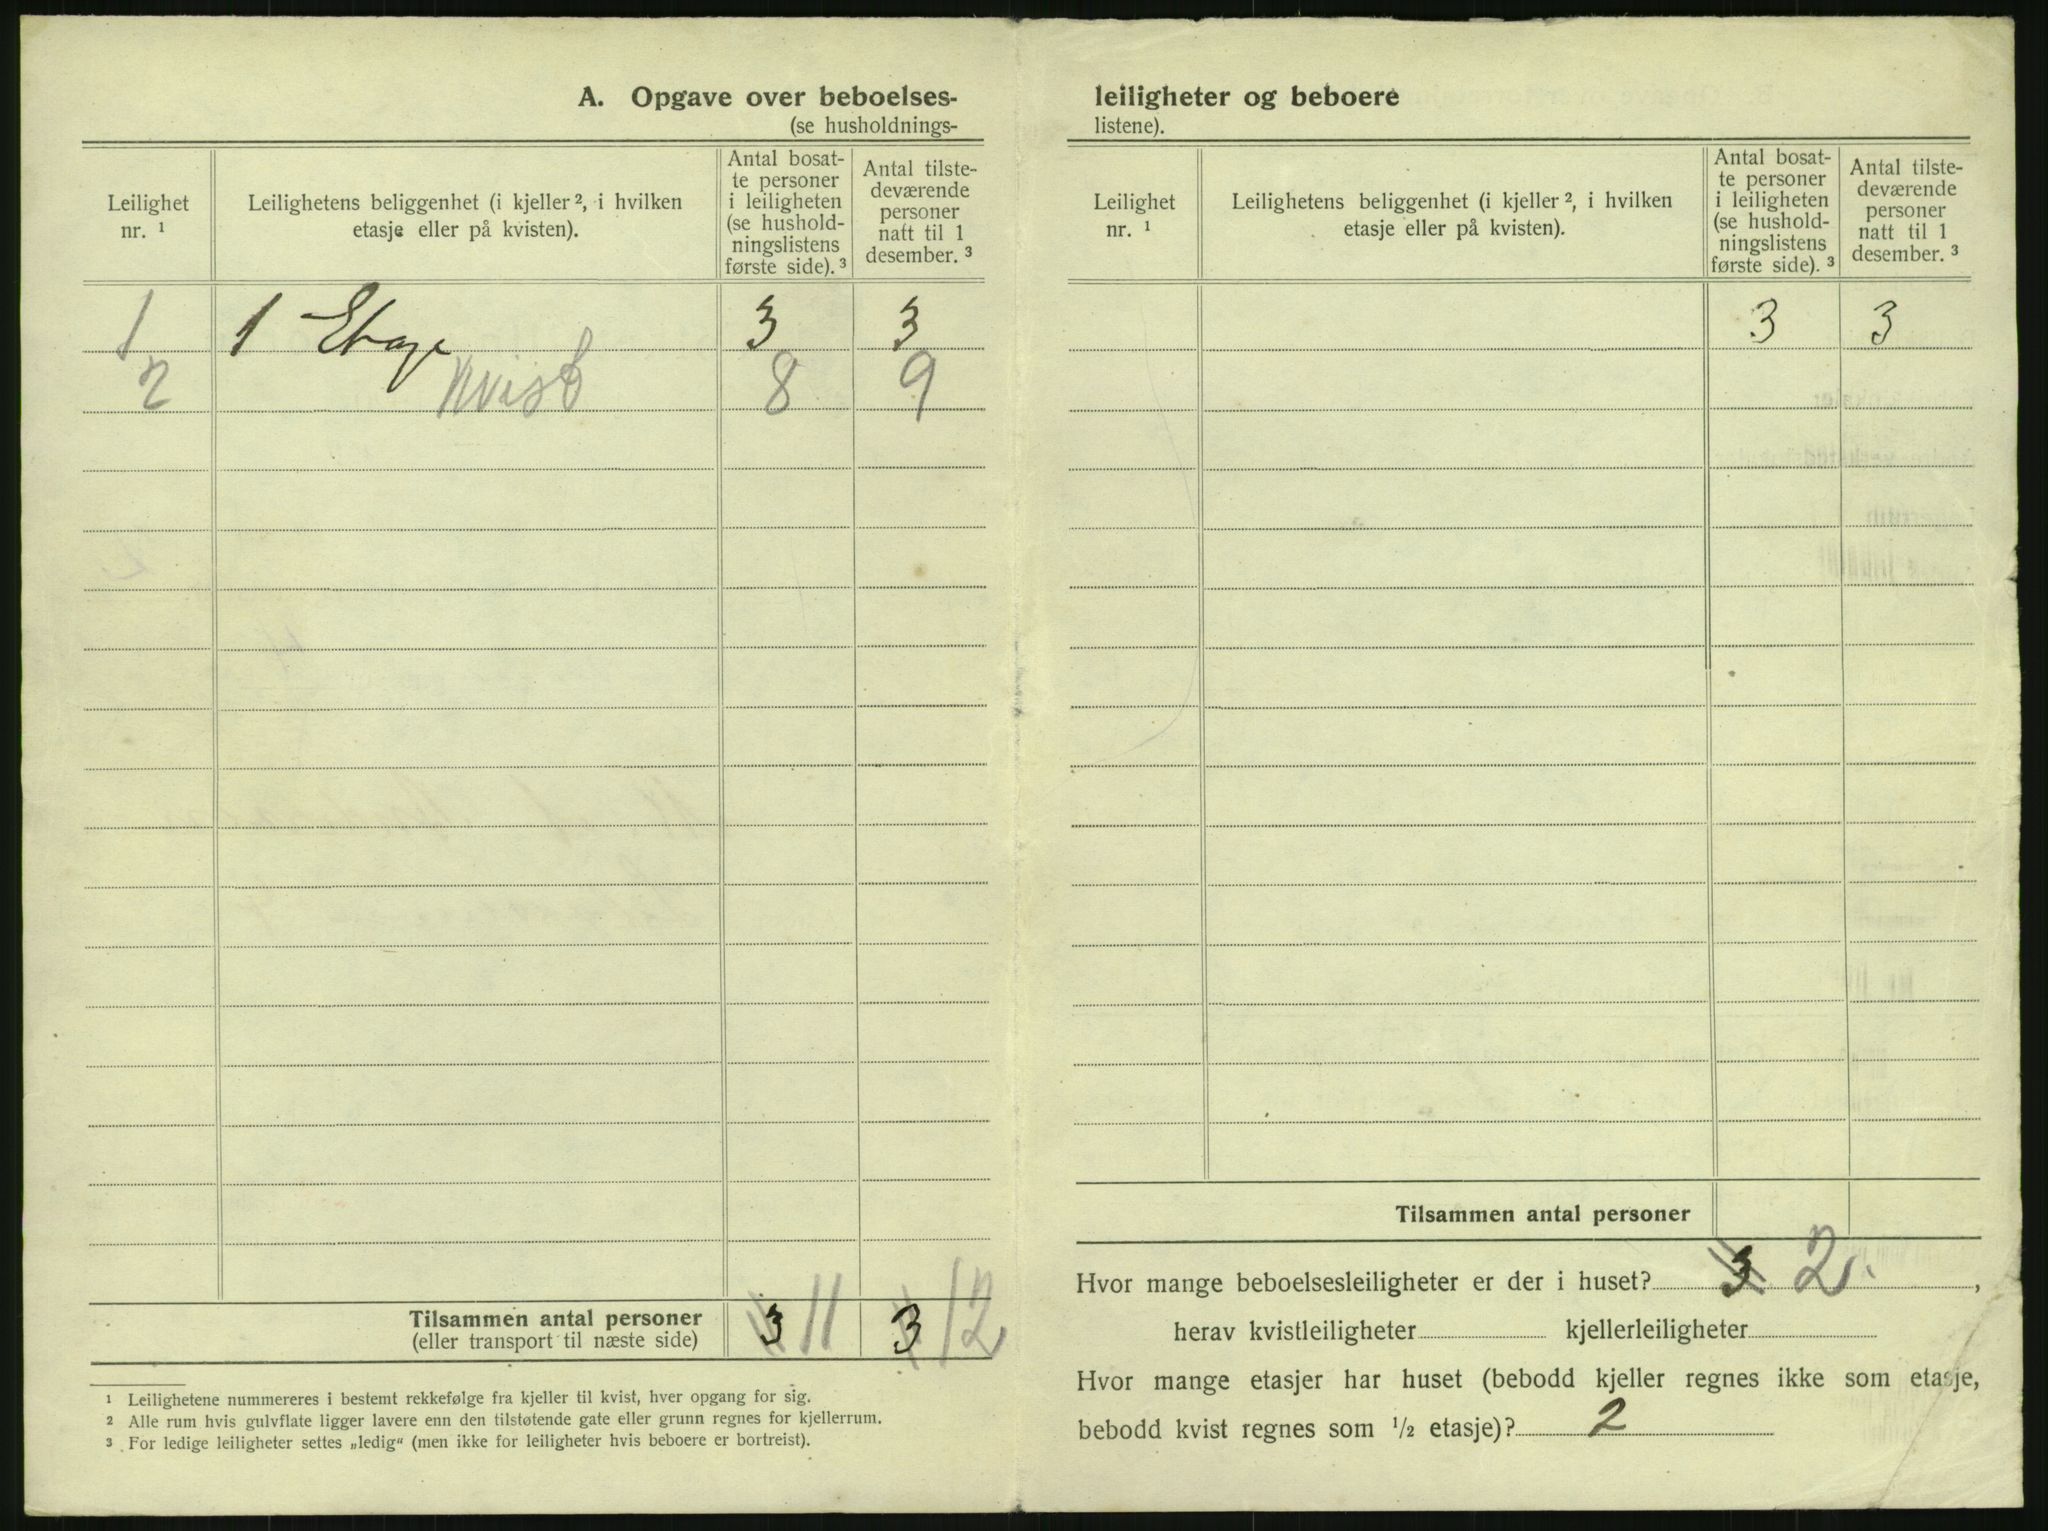 A. Opgave over beboelses-
(se husholdnings-
Leilighet nr. ¹
Leilighetens beliggenhet (i kjeller ², i hvilken etasje eller på kvisten).
Antal bosat-
te personer
i leiligheten
(se hushold-
ningslistens
første side). ³
Antal tilste-
deværende
personer
natt til 1
desember. ³
1 1 Etage 3 3
2 Kvist 8 9
Tilsammen antal personer 3 11 3 12
(eller transport til næste side)
¹ Leilighetene nummereres i bestemt rekkefølge fra kjeller til kvist, hver opgang for sig.
² Alle rum hvis gulvflate ligger lavere enn den tilstøtende gate eller grunn regnes for kjellerrum.
³ For ledige leiligheter settes „ledig“ (men ikke for leiligheter hvis beboere er bortreist).
leiligheter og beboere
listene).
Leilighet nr. ¹
Leilighetens beliggenhet (i kjeller ², i hvilken etasje eller på kvisten).
Antal bosat-
te personer
i leiligheten
(se hushold-
ningslistens
første side). ³
Antal tilste-
deværende
personer
natt til 1
desember. ³
3 3
Tilsammen antal personer
Hvor mange beboelsesleiligheter er der i huset? 3 2.,
herav kvistleiligheter kjellerleiligheter
Hvor mange etasjer har huset (bebodd kjeller regnes ikke som etasje,
bebodd kvist regnes som ½ etasje)? 2